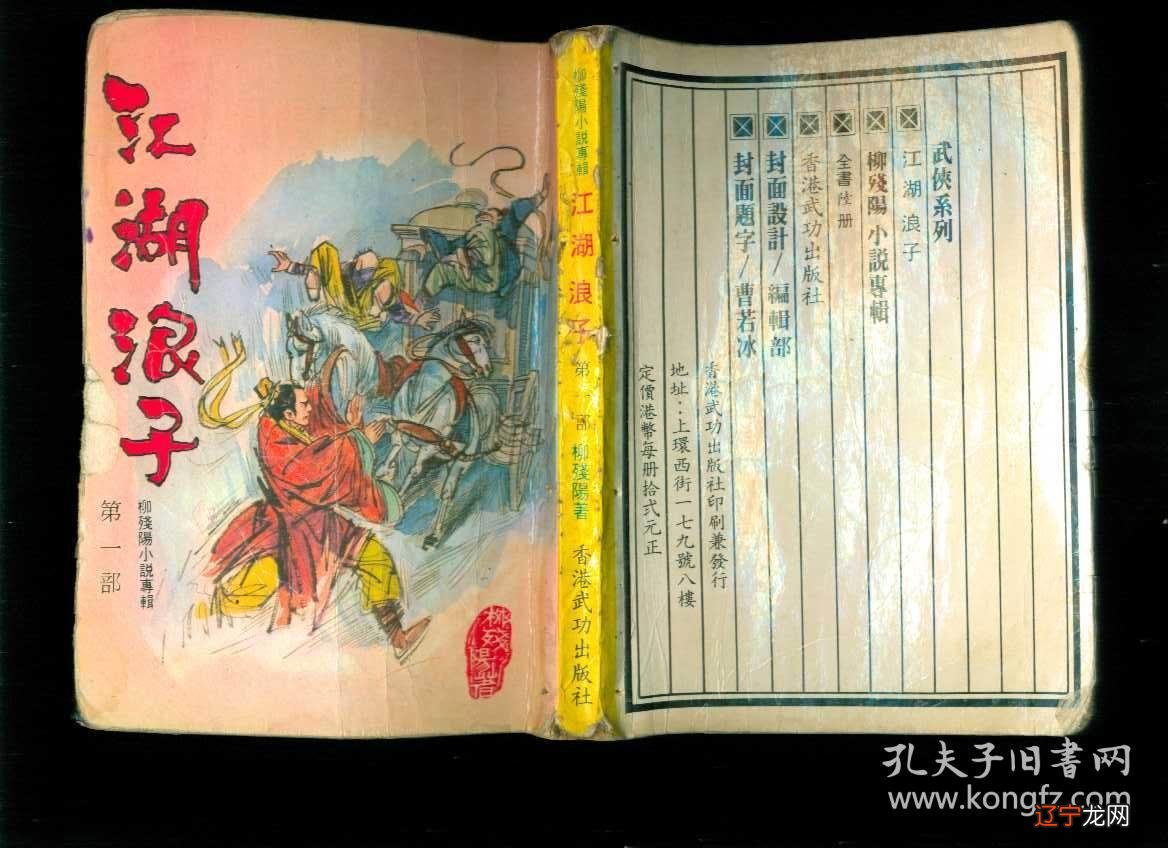 江湖浪子
柳殘陽小說專輯
第一部
柳残陽著
柳殘陽小說專輯
江湖浪子
第一部
柳殘陽著
香港武功出版社
武俠系列
江湖浪子
柳殘陽小説專輯
全書陸册
香港武功出版社
封面設計/編輯部
封面題字/曹若冰
香港武功出版社印刷兼發行
地址：上環西街一七九號八樓
定價港幣每册拾弍元正
孔夫子旧書网
www.kongfz.com
辽宁龙网